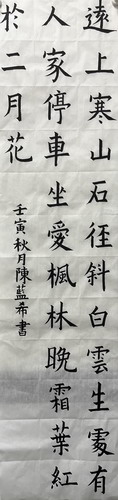 遠上寒山石徑斜白雲生處有
人家停車坐愛楓林晚霜葉紅
於二月花
壬寅秋月陳藍希書